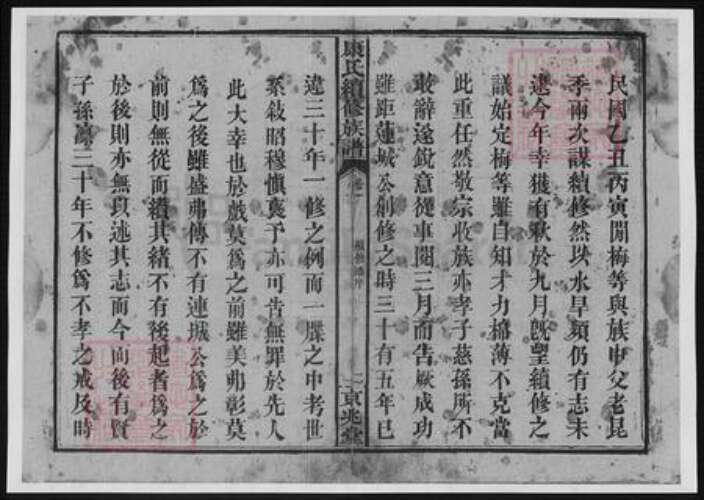 民國乙丑丙寅閒梅等與族中父老昆
季兩次謀續修然以水旱頻仍有志未
逮今年幸獲有秋於九月旣望續修之
議始定梅等雖自知才力棉薄不克當
此重任然敬宗收族亦孝子慈孫所不
敢辭遂銳意從事閱三月而告厥成功
雖距蓮城公創修之時三十有五年已
康氏續修族譜
卷一
續修譜序
二
京兆堂
違三十年一修之例而一牒之中考世
系敍昭穆愼襄予亦可告無罪於先人
此大幸也於戲莫爲之前雖美弗彰莫
爲之後雖盛弗傳不有連城公爲之於
前則無從而續其緒不有後起者爲之
於後則亦無以述其志而今而後有賢
子孫稟三十年不修爲不孝之戒及時